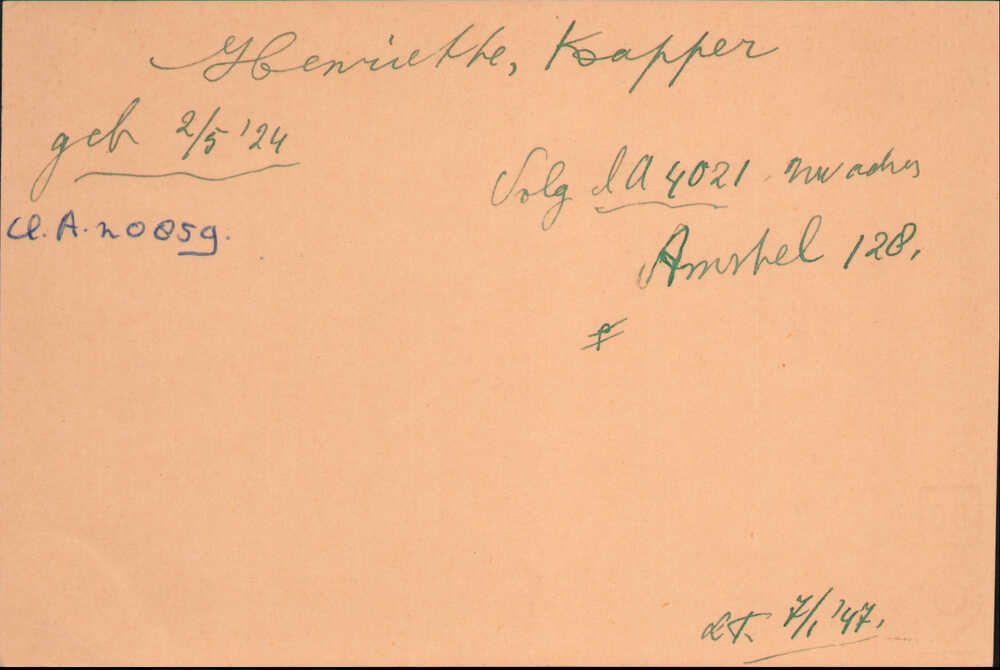 Henriette, Kapper
geb 2/5 '24
Volg lA 4021 nw adres
A. 20059.
Amstel 128.
LT. 7/1 '47.